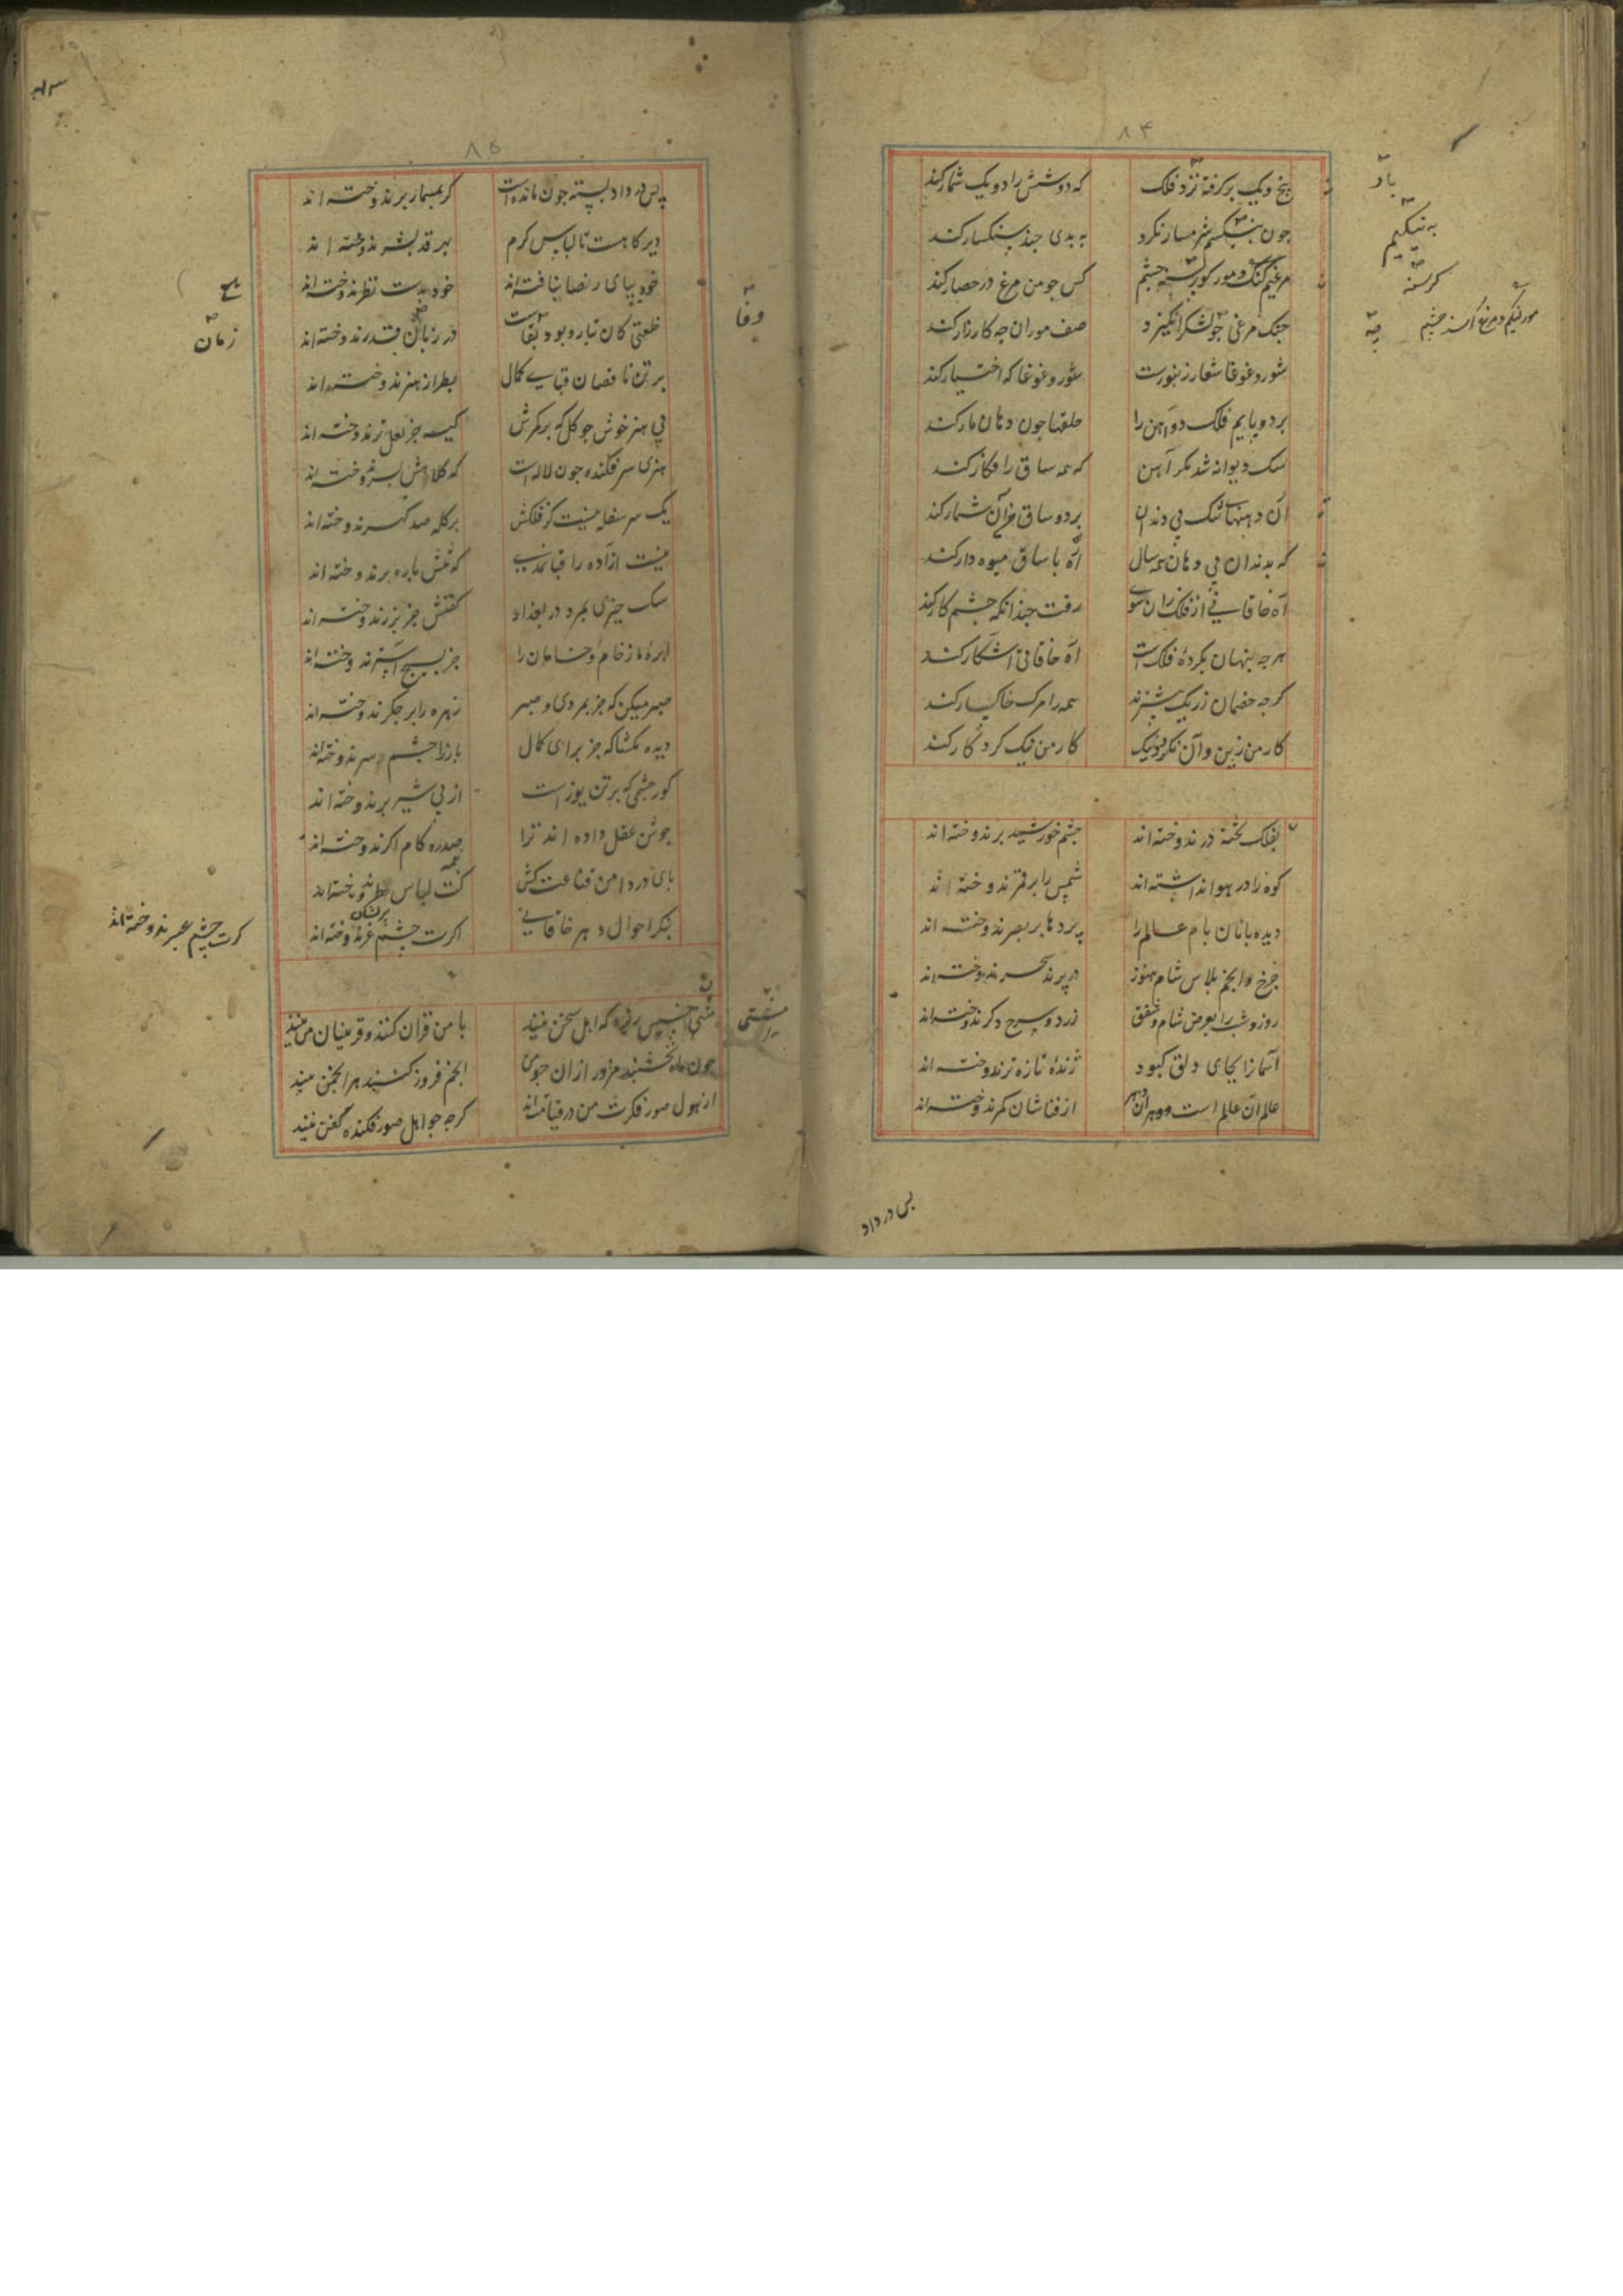 ۸۴
پنج و یک برکرفته نزد فلک که دو شش را دو یک شمار کند
جون بنیکیم شرمسار نکرد به بدی جند سنکسار کند
مرغیم کنک و مور کرسنه جشم کس جو من مرغ در حصار کند
جنک مرغی جو لشکر انکیزد صف موران جه کارزار کند
شور و غوغا شعار زنبورست شور و غوغا که اختیار کند
بر دو پایم فلک دو آهن را حلقها جون دهان مار کند
سک دیوانه شد مکر آهن که همه ساق را فکار کند
آن دهنهای تنک بی دندان بر دو ساق من آن شمار کند
که بدندان بی دهان همه سال اره با ساق میوه دار کند
آه خاقانی از فلک زان سوی رفت جندانکه جشم کار کند
هرجه پنهان بکردهٔ فلک است آه خاقانی آشکار کند
کرجه خصمان ز ریک بیشترند همه را مرک خاکسار کند
کار من زین و آن نکردد نیک کار من نیک کردکار کند
بفلک تخته در ندوخته اند جشم خورشید بر ندوخته اند
کوه را در هوا نداشته اند شمس را بر قمر ندوخته اند
دیده بانان بام عالم را پردها بر بصر ندوخته اند
جرخ و انجم پلاس شام هنوز در پرند سحر ندوخته اند
روز و شب را بعرض شام و شفق زرد و سرخ دکر ندوخته اند
آسمانرا بجای دلق کبود ژندهٔ تازه تر ندوخته اند
عالم آن عالم است و دهر آن دهر از فناشان کمر ندوخته اند
پس در داد
باد
به نیکیم
کرسنه
۸۵
پس در داد بسته جون ماندست کر بمسمار بر ندوخته اند
دیر کاهست تا لباس کرم بهر قد بشر ندوخته اند
خود بپای رضا نیافته اند خود بدست نظر ندوخته اند
خلعتی کان ز تار و پود بقاست در زبان قدر ندوخته اند
بر تن ناقصان قبای کمال بطراز هنر ندوخته اند
بی هنر خوش جو کل که بر کمرش کیسه جز لعل تر ندوخته اند
هنری سرفکنده جون لاله است که کلاهش بسر ندوخته اند
یک سر سفله نیست کز فلکش بر کله صد کهر ندوخته اند
نیست آزاده را قبا نمدی که تنش پاره بر ندوخته اند
سک حیزی بمرد در بغداد کفنش جز بزر ندوخته اند
ابرهٔ ما ز خام و خامان را جز نسیج آستر ندوخته اند
صبر میکن که جز بمردی و صبر زهره را بر جکر ندوخته اند
دیده مکشا که جز برای کمال باز را جشم و سر ندوخته اند
کور جشمی که بر تن یوز است از پی شیر نر ندوخته اند
جوشن عقل داده اند ترا صدره کام اکر ندوخته اند
پای در دامن قناعت کش کت لباس بطر ندوخته اند
بنکر احوال دهر خاقانی اکرت جشم عبر ندوخته اند
مشتی خسیس ریزه که اهل سخن نیند با من قران کنند و قرینان من نیند
جون ماه نخشبند مزور از آن جو من انجم فروز کنبد هر انجمن نیند
از هول صور فکرت من در قیامتند کرجه جو اهل صور فکنده کفن نیند
وفا
زمان
مشتی
کرت جشم عبر ندوخته اند